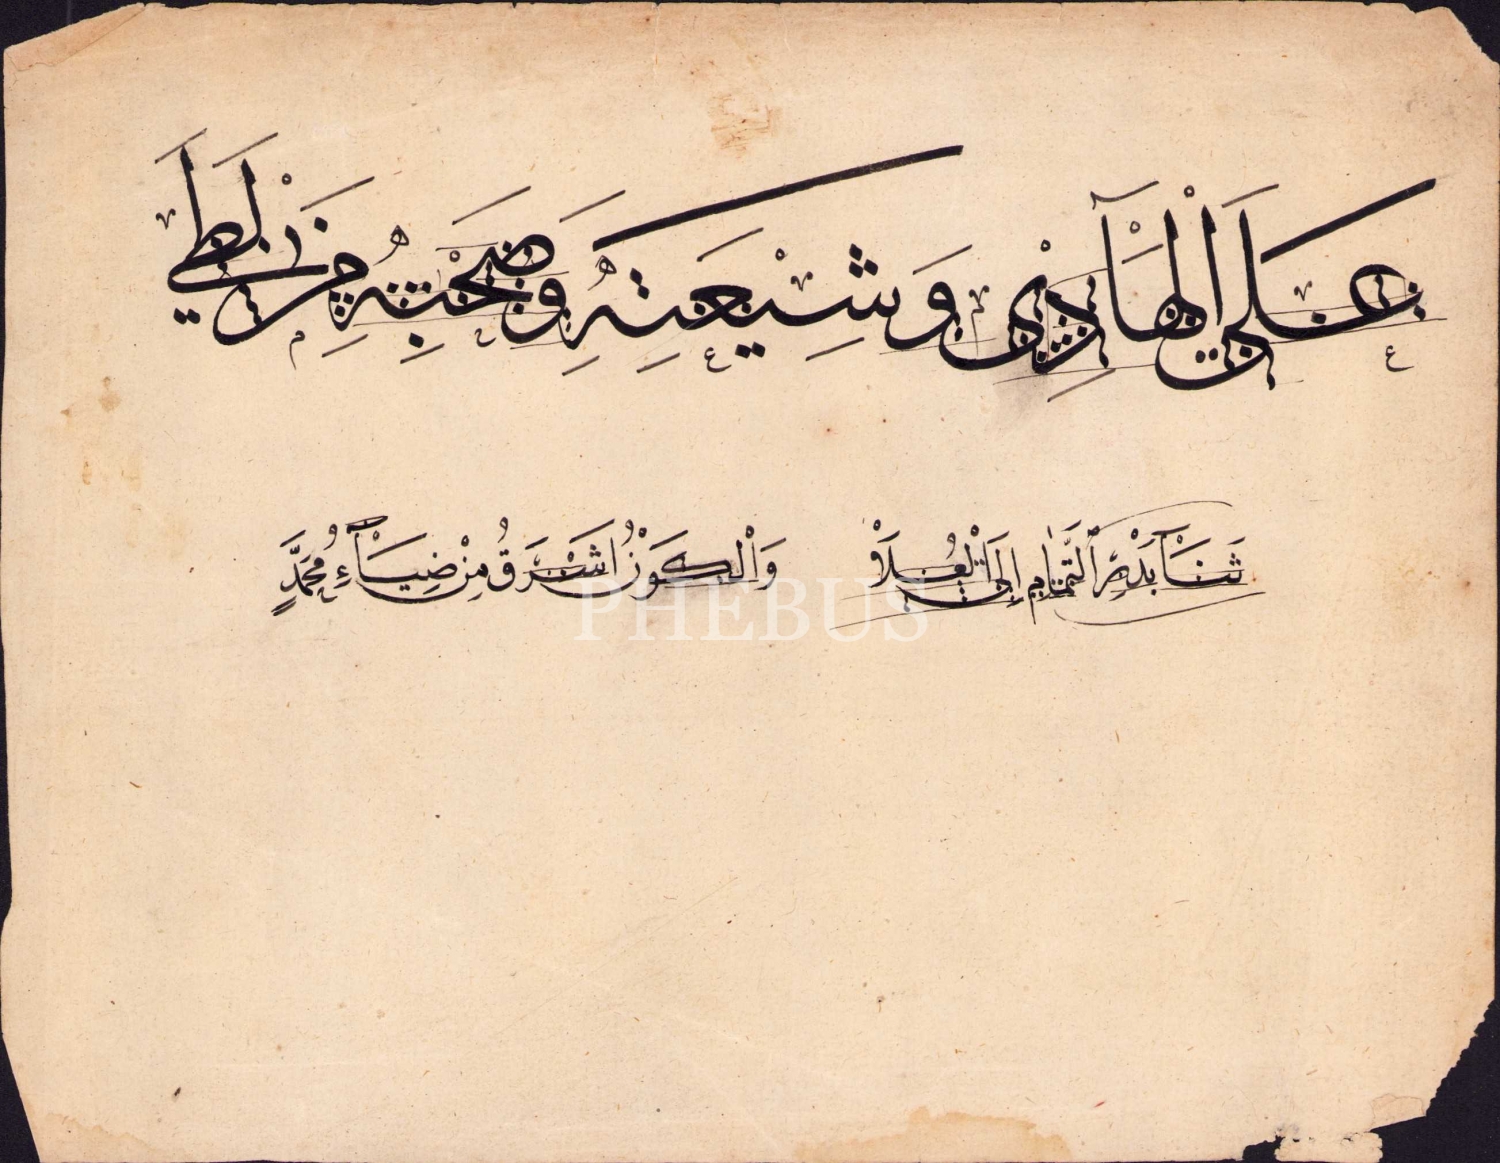 عَلَى الْهَادِي وَشِيعَتِهِ وَصَحْبِهِ مِنْ لَظَى
سَنَا بَدْرِ التَّمَامِ إِلَى الْعُلَا وَالْكَوْنُ اَشْرَقُ مِنْ ضِيَاءِ مُحَمَّدٍ
PHEBUS